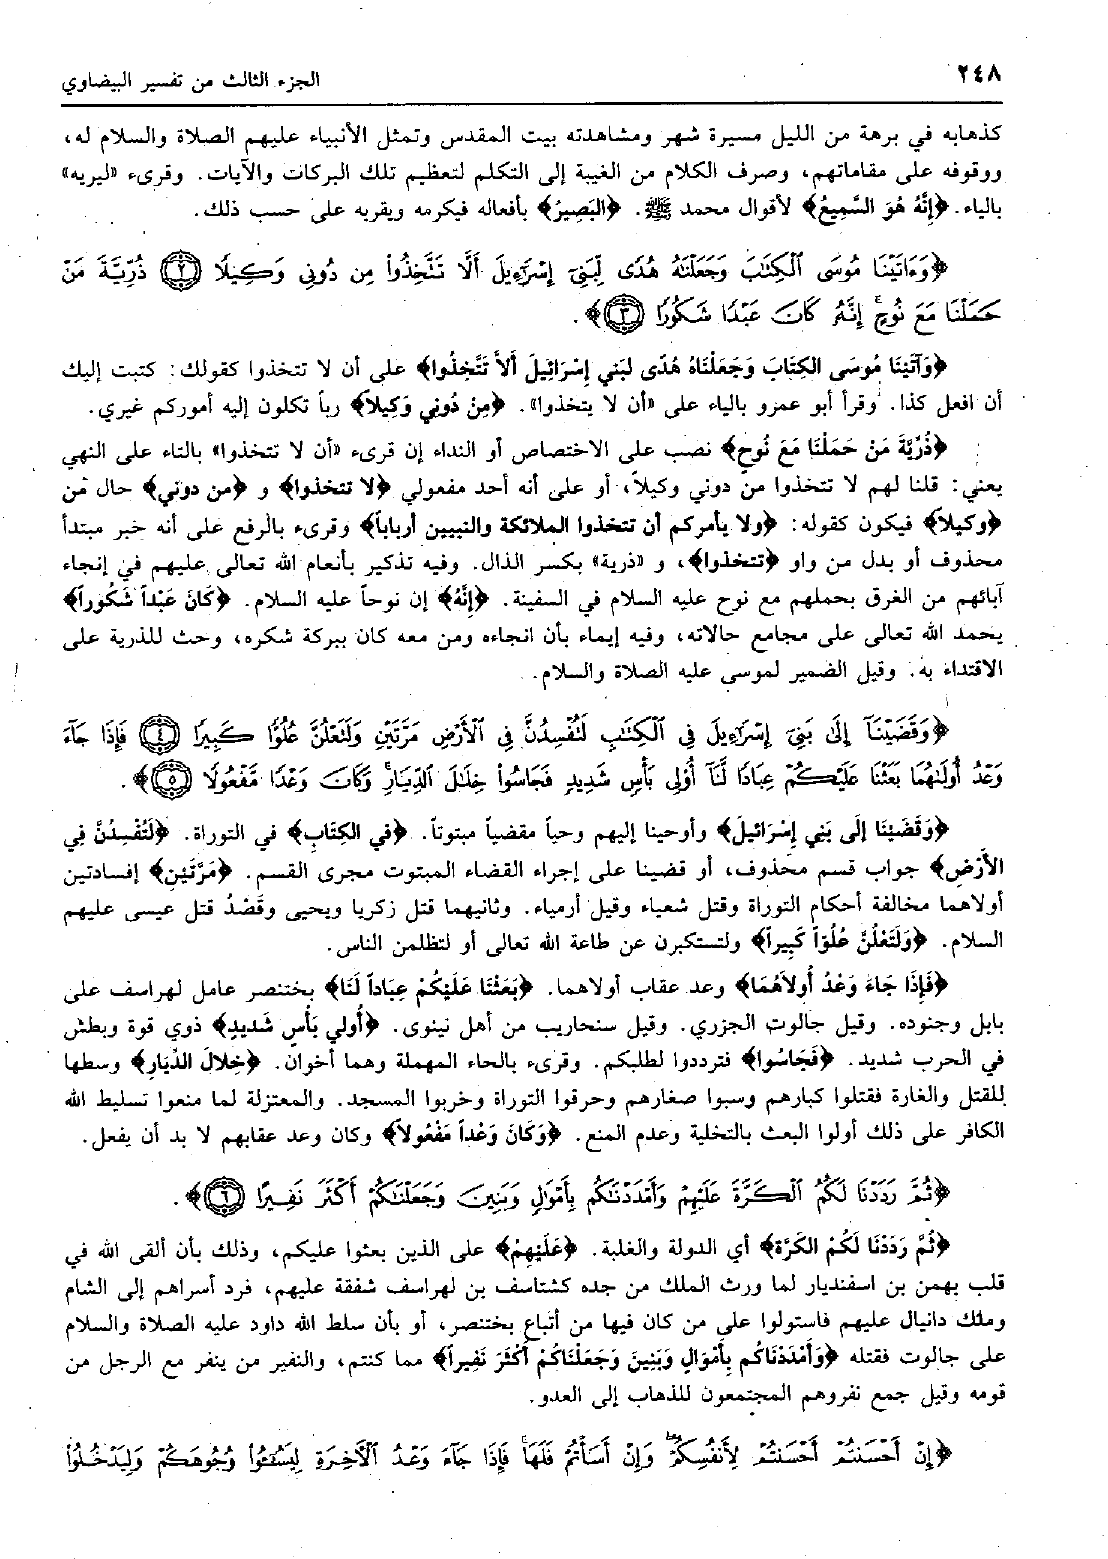 ٢٤٨
الجزء الثالث من تفسير البيضاوي
كذهابه في برهة من الليل مسيرة شهر ومشاهدته بيت المقدس وتمثل الأنبياء عليهم الصلاة والسلام له،
ووقوفه على مقاماتهم، وصرف الكلام من الغيبة إلى التكلم لتعظيم تلك البركات والآيات. وقرىء «ليريه»
بالياء. ﴿إِنَّهُ هُوَ السَّمِيعُ﴾ لأقوال محمد ﷺ. ﴿البَصِيرُ﴾ بأفعاله فيكرمه ويقربه على حسب ذلك.
﴿وَءَاتَيْنَا مُوسَى ٱلْكِتَٰبَ وَجَعَلْنَٰهُ هُدًى لِّبَنِىٓ إِسْرَٰٓءِيلَ أَلَّا تَتَّخِذُوا۟ مِن دُونِى وَكِيلًا ﴿٢﴾ ذُرِّيَّةَ مَنْ
حَمَلْنَا مَعَ نُوحٍ إِنَّهُۥ كَانَ عَبْدًا شَكُورًا ﴿٣﴾﴾.
﴿وَآتَيْنَا مُوسَى الكِتَابَ وَجَعَلْنَاهُ هُدًى لِبَنِي إِسْرَائِيلَ أَلاَّ تَتَّخِذُوا﴾ على أن لا تتخذوا كقولك: كتبت إليك
أن افعل كذا. وقرأ أبو عمرو بالياء على «أن لا يتخذوا». ﴿مِنْ دُونِي وَكِيلاً﴾ رباً تكلون إليه أموركم غيري.
﴿ذُرِّيَّةَ مَنْ حَمَلْنَا مَعَ نُوحٍ﴾ نصب على الاختصاص أو النداء إن قرىء «أن لا تتخذوا» بالتاء على النهي
يعني: قلنا لهم لا تتخذوا من دوني وكيلاً، أو على أنه أحد مفعولي ﴿لا تتخذوا﴾ و ﴿من دوني﴾ حال من
﴿وكيلاً﴾ فيكون كقوله: ﴿ولا يأمركم أن تتخذوا الملائكة والنبيين أرباباً﴾ وقرىء بالرفع على أنه خبر مبتدأ
محذوف أو بدل من واو ﴿تتخذوا﴾، و «ذرية» بكسر الذال. وفيه تذكير بأنعام الله تعالى عليهم في إنجاء
آبائهم من الغرق بحملهم مع نوح عليه السلام في السفينة. ﴿إِنَّهُ﴾ إن نوحاً عليه السلام. ﴿كَانَ عَبْداً شَكُوراً﴾
يحمد الله تعالى على مجامع حالاته، وفيه إيماء بأن انجاءه ومن معه كان ببركة شكره، وحث للذرية على
الاقتداء به. وقيل الضمير لموسى عليه الصلاة والسلام.
﴿وَقَضَيْنَآ إِلَىٰ بَنِىٓ إِسْرَٰٓءِيلَ فِى ٱلْكِتَٰبِ لَتُفْسِدُنَّ فِى ٱلْأَرْضِ مَرَّتَيْنِ وَلَتَعْلُنَّ عُلُوًّا كَبِيرًا ﴿٤﴾ فَإِذَا جَآءَ
وَعْدُ أُولَىٰهُمَا بَعَثْنَا عَلَيْكُمْ عِبَادًا لَّنَآ أُو۟لِى بَأْسٍ شَدِيدٍ فَجَاسُوا۟ خِلَٰلَ ٱلدِّيَارِ وَكَانَ وَعْدًا مَّفْعُولًا ﴿٥﴾﴾.
﴿وَقَضَيْنَا إِلَى بَنِي إِسْرَائِيلَ﴾ وأوحينا إليهم وحياً مقضياً مبتوتاً. ﴿في الكِتَابِ﴾ في التوراة. ﴿لَتُفْسِدُنَّ فِي
الأَرْضِ﴾ جواب قسم محذوف، أو قضينا على إجراء القضاء المبتوت مجرى القسم. ﴿مَرَّتَيْنِ﴾ إفسادتين
أولاهما مخالفة أحكام التوراة وقتل شعياء وقيل أرمياء. وثانيهما قتل زكريا ويحيى وقَصْدُ قتل عيسى عليهم
السلام. ﴿وَلَتَعْلُنَّ عُلُوّاً كَبِيراً﴾ ولتستكبرن عن طاعة الله تعالى أو لتظلمن الناس.
﴿فَإِذَا جَاءَ وَعْدُ أُولاَهُمَا﴾ وعد عقاب أولاهما. ﴿بَعَثْنَا عَلَيْكُمْ عِبَاداً لَنَا﴾ بختنصر عامل لهراسف على
بابل وجنوده. وقيل جالوت الجزري. وقيل سنحاريب من أهل نينوى. ﴿أُولي بَأْسٍ شَدِيدٍ﴾ ذوي قوة وبطش
في الحرب شديد. ﴿فَجَاسُوا﴾ فترددوا لطلبكم. وقرىء بالحاء المهملة وهما أخوان. ﴿خِلاَلَ الدِّيَارِ﴾ وسطها
للقتل والغارة فقتلوا كبارهم وسبوا صغارهم وحرقوا التوراة وخربوا المسجد. والمعتزلة لما منعوا تسليط الله
الكافر على ذلك أولوا البعث بالتخلية وعدم المنع. ﴿وَكَانَ وَعْداً مَفْعُولاً﴾ وكان وعد عقابهم لا بد أن يفعل.
﴿ثُمَّ رَدَدْنَا لَكُمُ ٱلْكَرَّةَ عَلَيْهِمْ وَأَمْدَدْنَٰكُم بِأَمْوَٰلٍ وَبَنِينَ وَجَعَلْنَٰكُمْ أَكْثَرَ نَفِيرًا ﴿٦﴾﴾.
﴿ثُمَّ رَدَدْنَا لَكُمْ الكَرَّةَ﴾ أي الدولة والغلبة. ﴿عَلَيْهِمْ﴾ على الذين بعثوا عليكم، وذلك بأن ألقى الله في
قلب بهمن بن اسفنديار لما ورث الملك من جده كشتاسف بن لهراسف شفقة عليهم، فرد أسراهم إلى الشام
وملك دانيال عليهم فاستولوا على من كان فيها من أتباع بختنصر، أو بأن سلط الله داود عليه الصلاة والسلام
على جالوت فقتله ﴿وَأَمْدَدْنَاكُم بِأَمْوَالٍ وَبَنِينَ وَجَعَلْنَاكُمْ أَكْثَرَ نَفِيراً﴾ مما كنتم، والنفير من ينفر مع الرجل من
قومه وقيل جمع نفروهم المجتمعون للذهاب إلى العدو.
﴿إِنْ أَحْسَنتُمْ أَحْسَنتُمْ لِأَنفُسِكُمْ وَإِنْ أَسَأْتُمْ فَلَهَا فَإِذَا جَآءَ وَعْدُ ٱلْآخِرَةِ لِيَسُـۥٓـُٔوا۟ وُجُوهَكُمْ وَلِيَدْخُلُوا۟